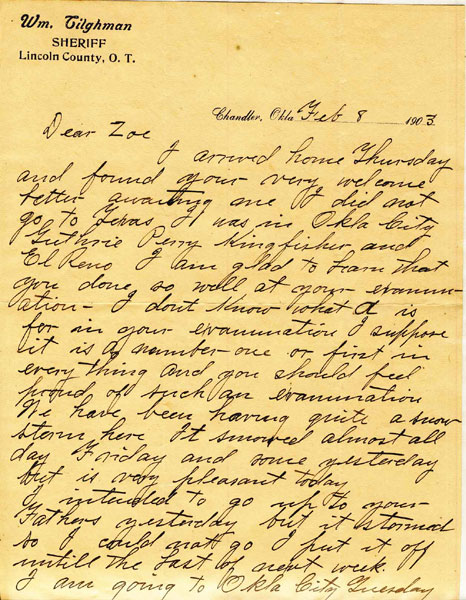 Wm. Tilghman
SHERIFF
Lincoln County, O. T.
Chandler, Okla Feb 8 1903
Dear Zoe
I arrived home Thursday
and found your very welcome
letter awaiting me I did not
go to Texas I was in Okla City
Guthrie Perry Kingfisher, and
El Reno I am glad to learn that
you done so well at your examin-
ation - I dont know what A is
for in your examination I suppose
it is a number one or first in
every thing and you should feel
proud of such an examination
We have been having quite a snow
storm here It snowed almost all
day Friday and some yesterday
but is very pleasant today
I intended to go up to your
Fathers yesterday but it stormed
so I could not go I put it off
untill the last of next week.
I am going to Okla City Tuesday